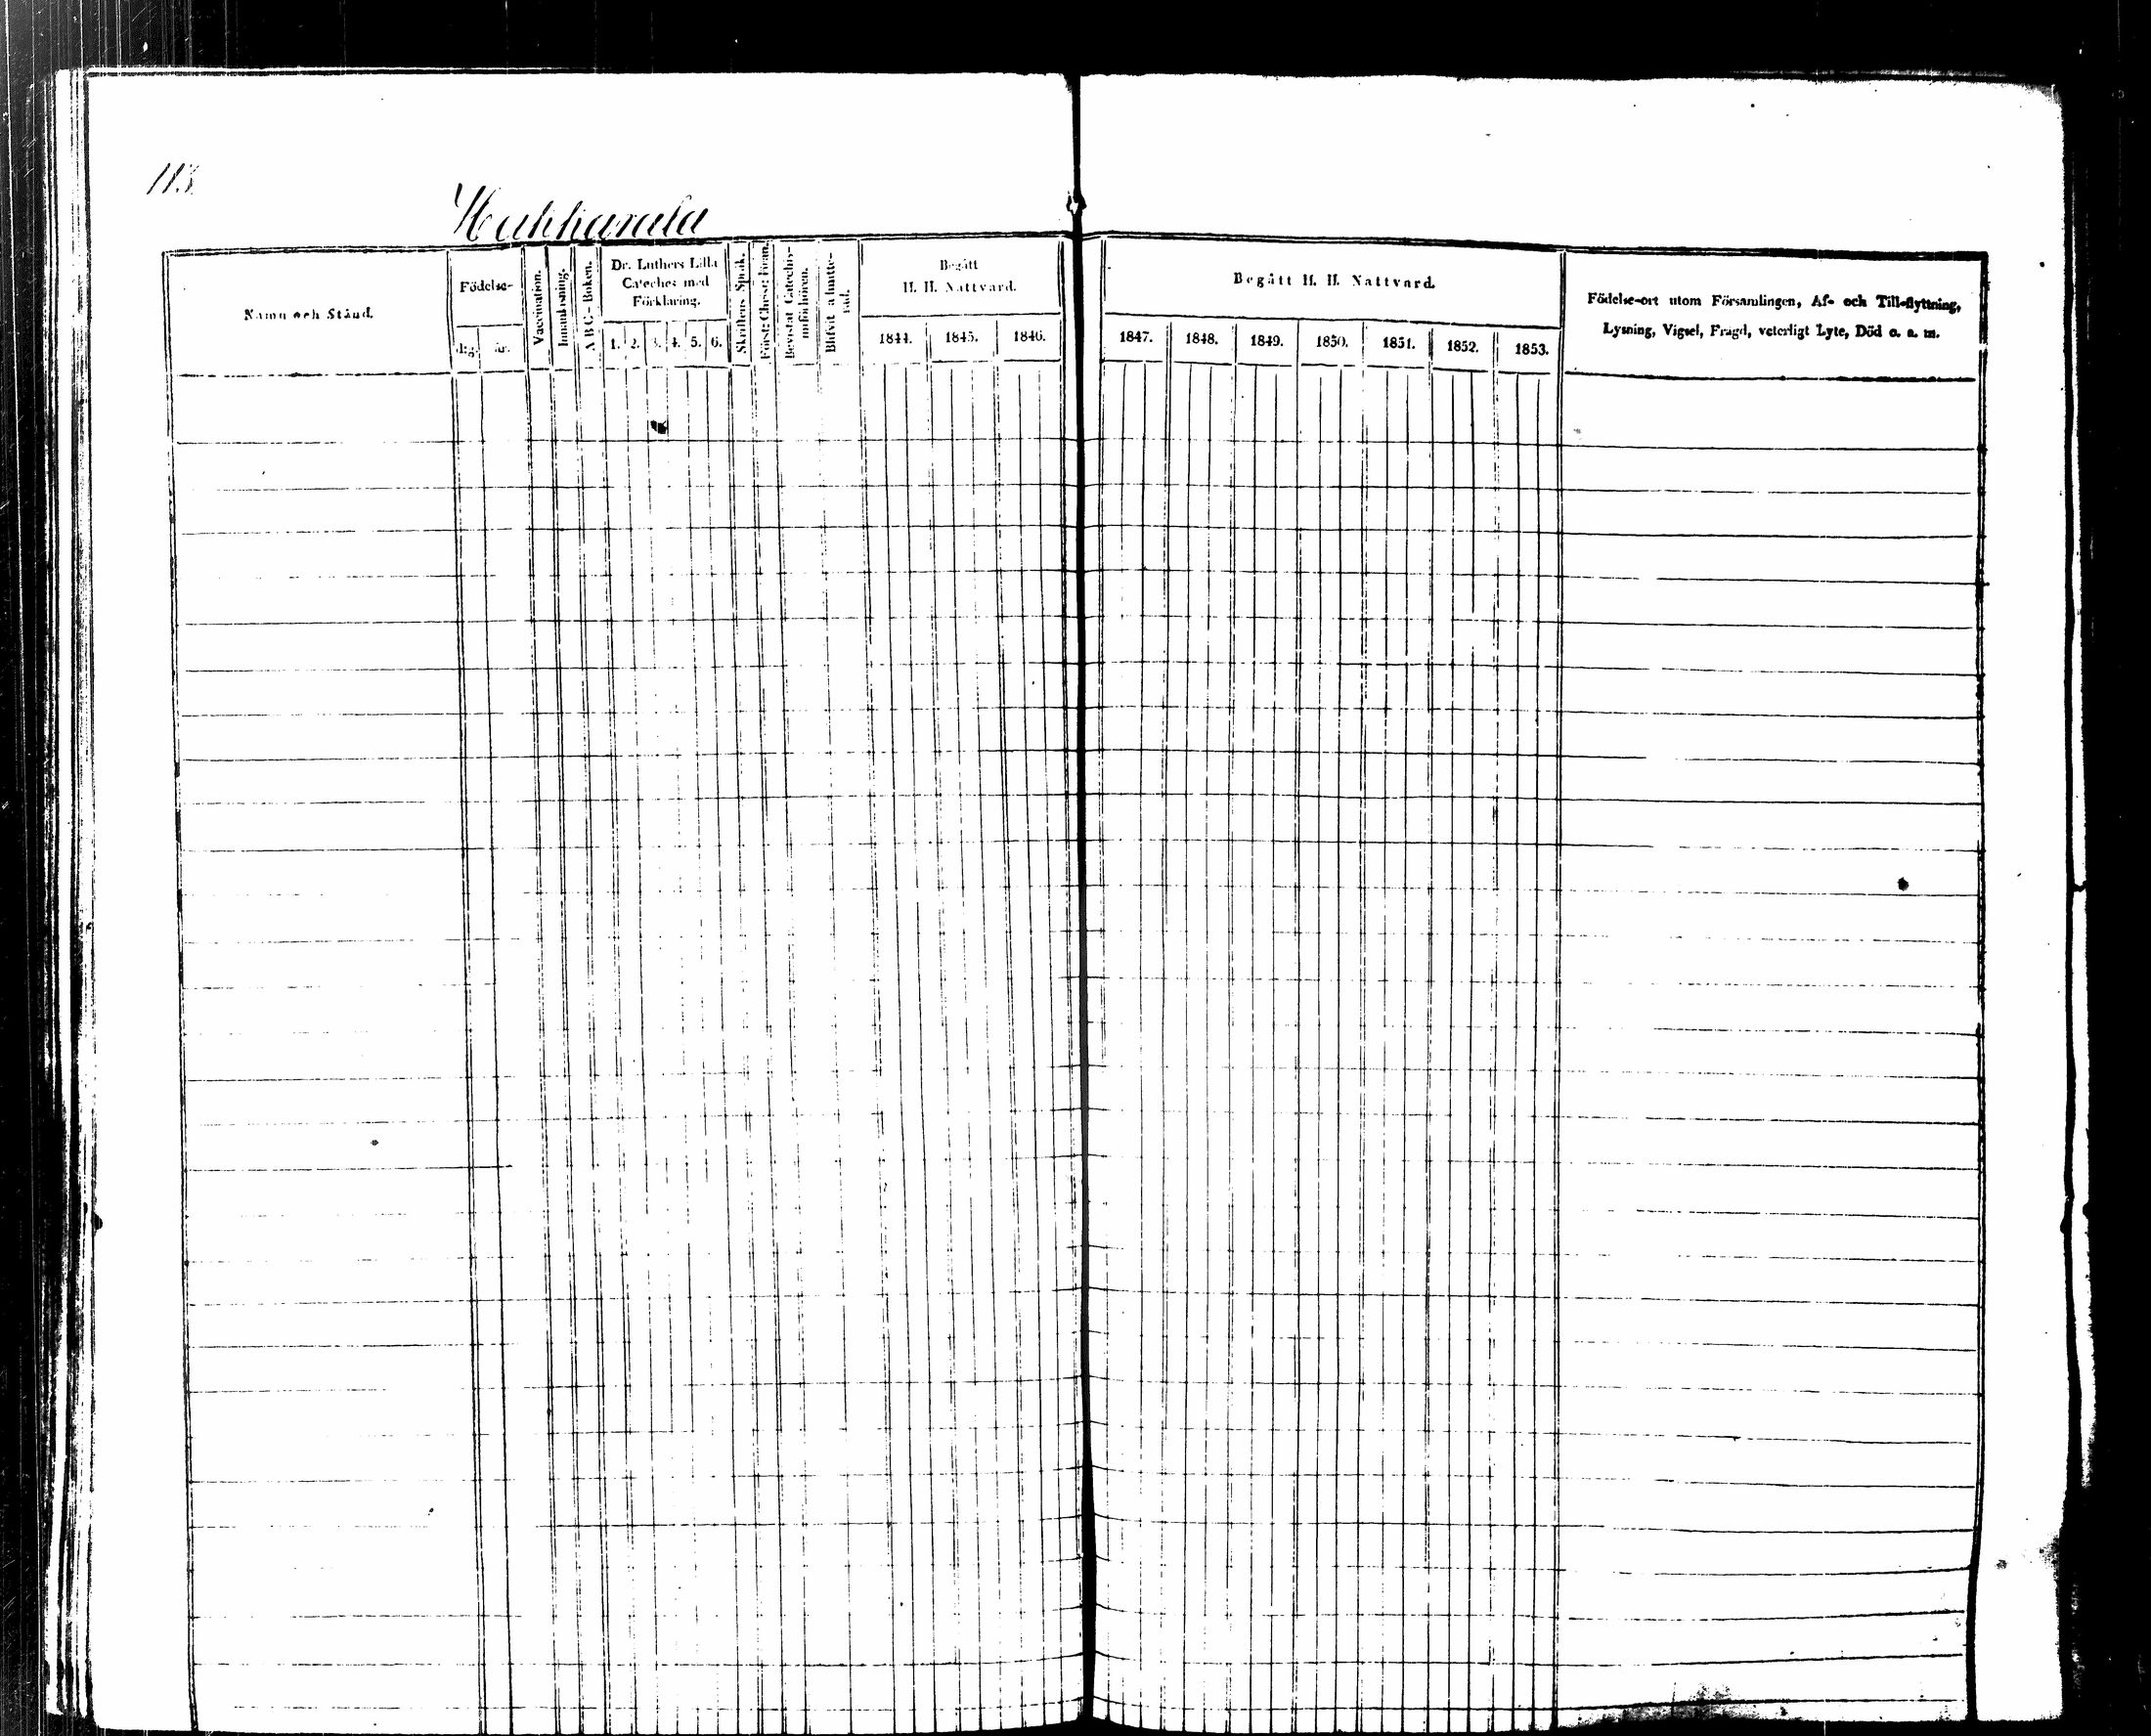 113.
Hukkanala
Namn och Stånd.
Födelse-
dag.
år.
Vaccination.
Innanläsning.
A B C-Boken.
Dr. Luthers Lilla
Cateches med
Förklaring.
1. 2. 3. 4. 5. 6.
Skriftens Språk.
Begått
H. H. Nattvard.
1844. 1845. 1846.
Begått H. H. Nattvard.
1847. 1848. 1849. 1850. 1851. 1852. 1853.
Födelse-ort utom Församlingen, Af- och Till-flyttning,
Lysning, Vigsel, Frägd, veterligt Lyte, Död o. a. m.